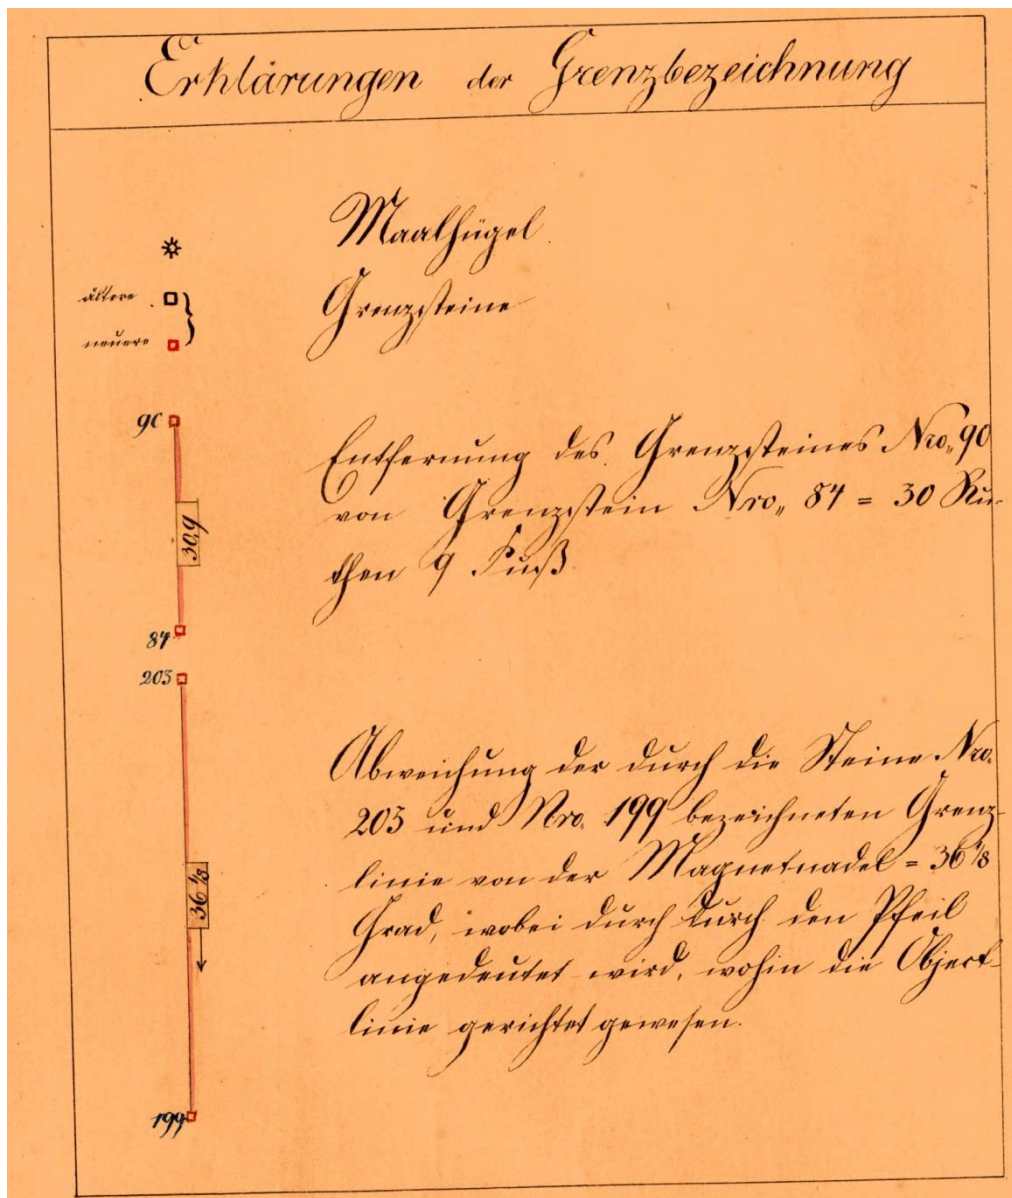 Erklärungen der Grenzbezeichnung
Maalhügel.
ältere
Grenzsteine
neuere
90
Entfernung des Grenzsteines Nro. 90
von Grenzstein Nro. 84 = 30 Ru-
30,9
then 9 Fuß
84
203
Abweichung der durch die Steine Nro.
203 und Nro. 199 bezeichneten Grenz-
linie von der Magnetnadel = 36 1/8
36 1/8
Grad, wobei durch durch den Pfeil
angedeutet wird, wohin die Object-
linie gerichtet gewesen.
199